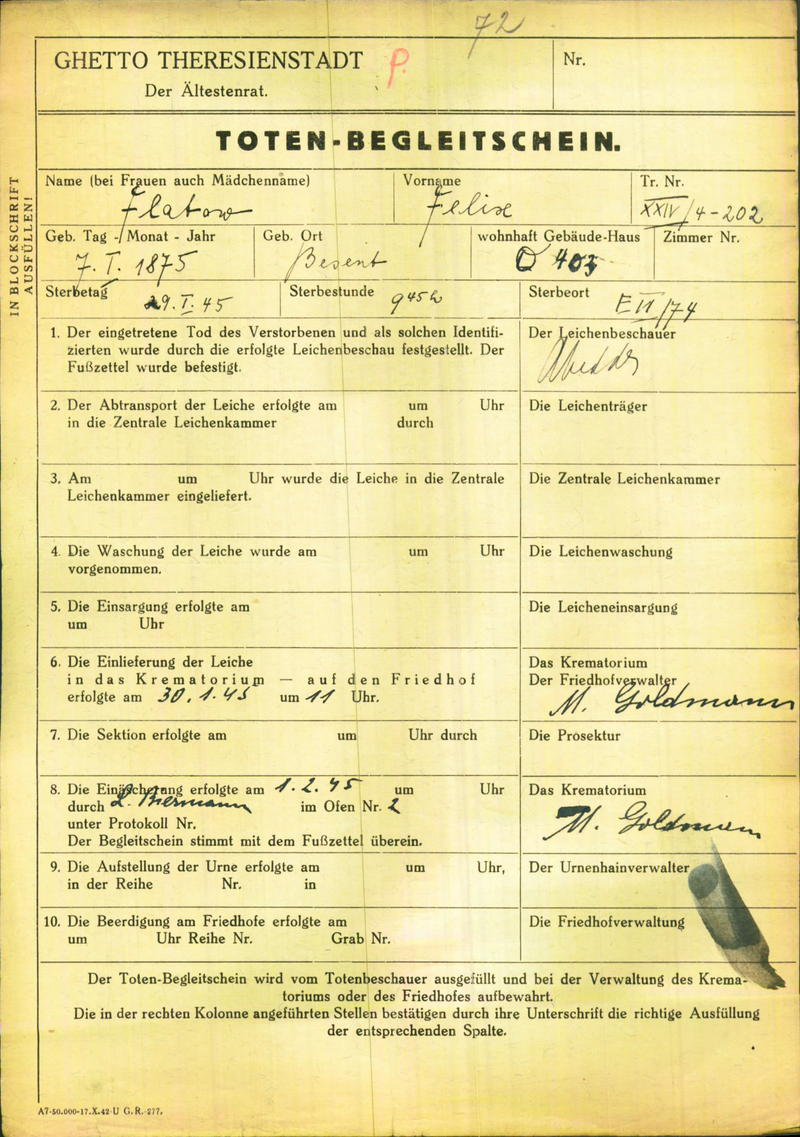 72
GHETTO THERESIENSTADT P.
Der Ältestenrat.
Nr.
TOTEN-BEGLEITSCHEIN.
IN BLOCKSCHRIFT
AUSFÜLLEN!
Name (bei Frauen auch Mädchenname) Vorname Tr. Nr.
Flatow Felix XXIV/4-202
Geb. Tag - Monat - Jahr Geb. Ort wohnhaft Gebäude-Haus Zimmer Nr.
7. I. 1875 Besent Q 403
Sterbetag 29. I. 45 Sterbestunde 9 45 h Sterbeort E II/74
1. Der eingetretene Tod des Verstorbenen und als solchen Identifi-
zierten wurde durch die erfolgte Leichenbeschau festgestellt. Der
Fußzettel wurde befestigt.
Der Leichenbeschauer
2. Der Abtransport der Leiche erfolgte am um Uhr
in die Zentrale Leichenkammer durch
Die Leichenträger
3. Am um Uhr wurde die Leiche in die Zentrale
Leichenkammer eingeliefert.
Die Zentrale Leichenkammer
4. Die Waschung der Leiche wurde am um Uhr
vorgenommen.
Die Leichenwaschung
5. Die Einsargung erfolgte am
um Uhr
Die Leicheneinsargung
6. Die Einlieferung der Leiche
in das Krematorium — auf den Friedhof
erfolgte am 30. 1. 45 um 11 Uhr.
Das Krematorium
Der Friedhofverwalter
M. Goldmann
7. Die Sektion erfolgte am um Uhr durch
Die Prosektur
8. Die Einäscherung erfolgte am 1. 2. 45 um Uhr
durch im Ofen Nr. 2
unter Protokoll Nr.
Der Begleitschein stimmt mit dem Fußzettel überein.
Das Krematorium
M. Goldmann
9. Die Aufstellung der Urne erfolgte am um Uhr,
in der Reihe Nr. in
Der Urnenhainverwalter
10. Die Beerdigung am Friedhofe erfolgte am
um Uhr Reihe Nr. Grab Nr.
Die Friedhofverwaltung
Der Toten-Begleitschein wird vom Totenbeschauer ausgefüllt und bei der Verwaltung des Krema-
toriums oder des Friedhofes aufbewahrt.
Die in der rechten Kolonne angeführten Stellen bestätigen durch ihre Unterschrift die richtige Ausfüllung
der entsprechenden Spalte.
A7-50.000-17.X.42 U G.R. 277.